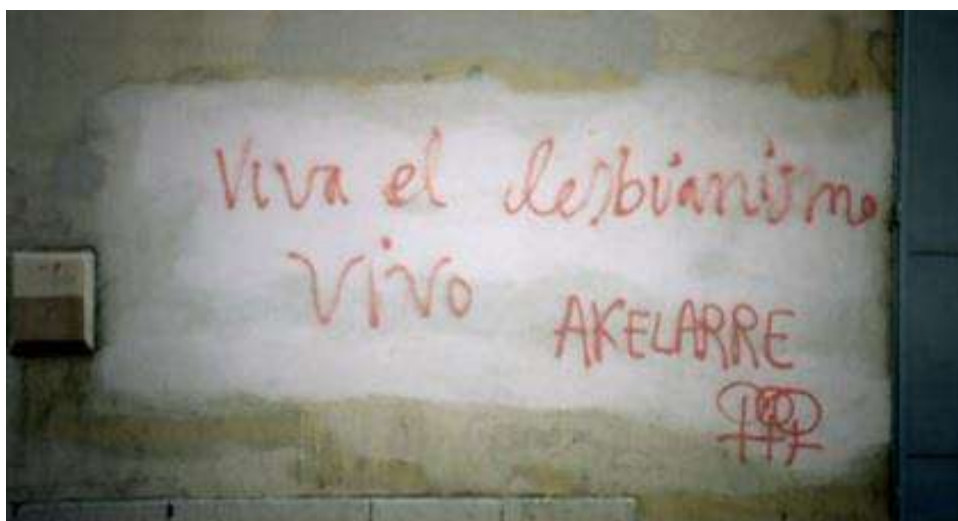 Viva el lesbianismo
vivo
AKELARRE